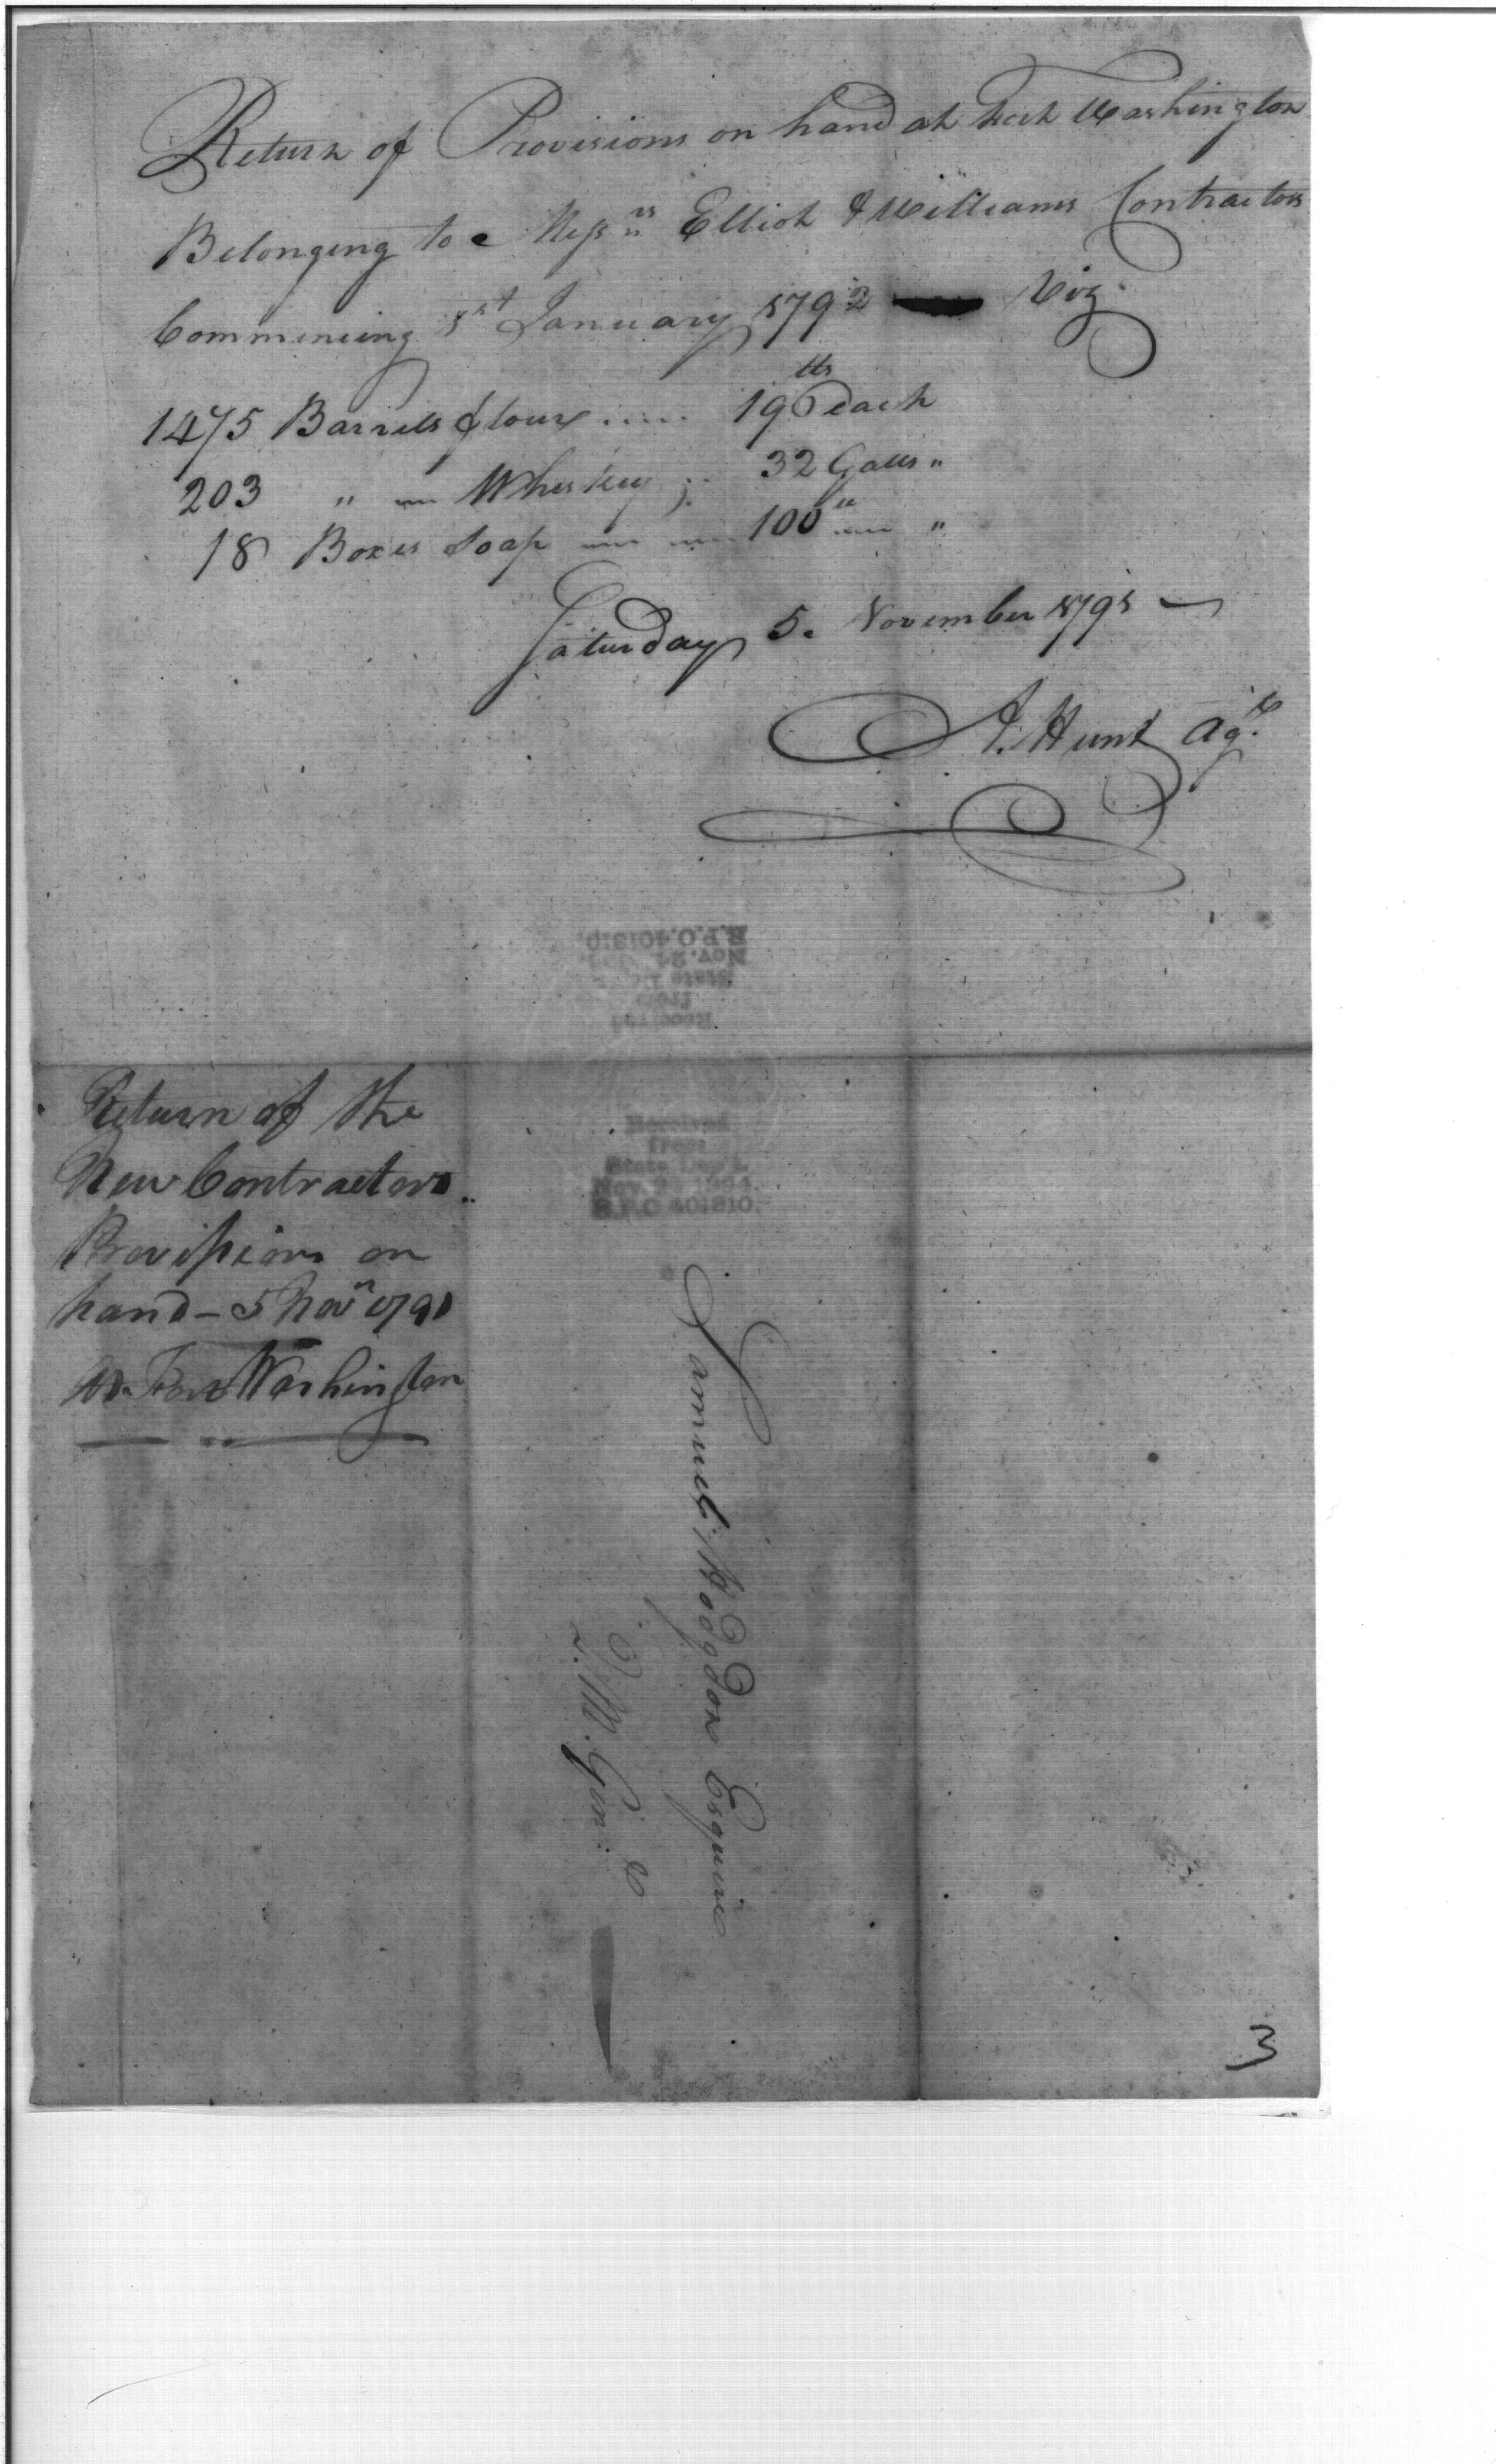 Return of Provisions on hand at Fort Washington
Belonging to Messrs Elliot & Williams Contractors
Commencing 1st January 1792 Viz
1475 Barrells flour ..... 196 lbs each
203 " " Whiskey .. 32 Galls "
18 Boxes Soap 100 lb "
Saturday 5. November 1791 —
J. Hunt Agt.
Received
from
State Dep't.
Nov. 24
R.P.O. 401810.
Return of the
New Contractors
Provisions on
hand - 5 Novr 1791
at Fort Washington
Received
from
State Dep't.
Nov. 1894.
R.P.O. 401810.
Samuel Hodgdon Esquire
Q. M. Gen:
3